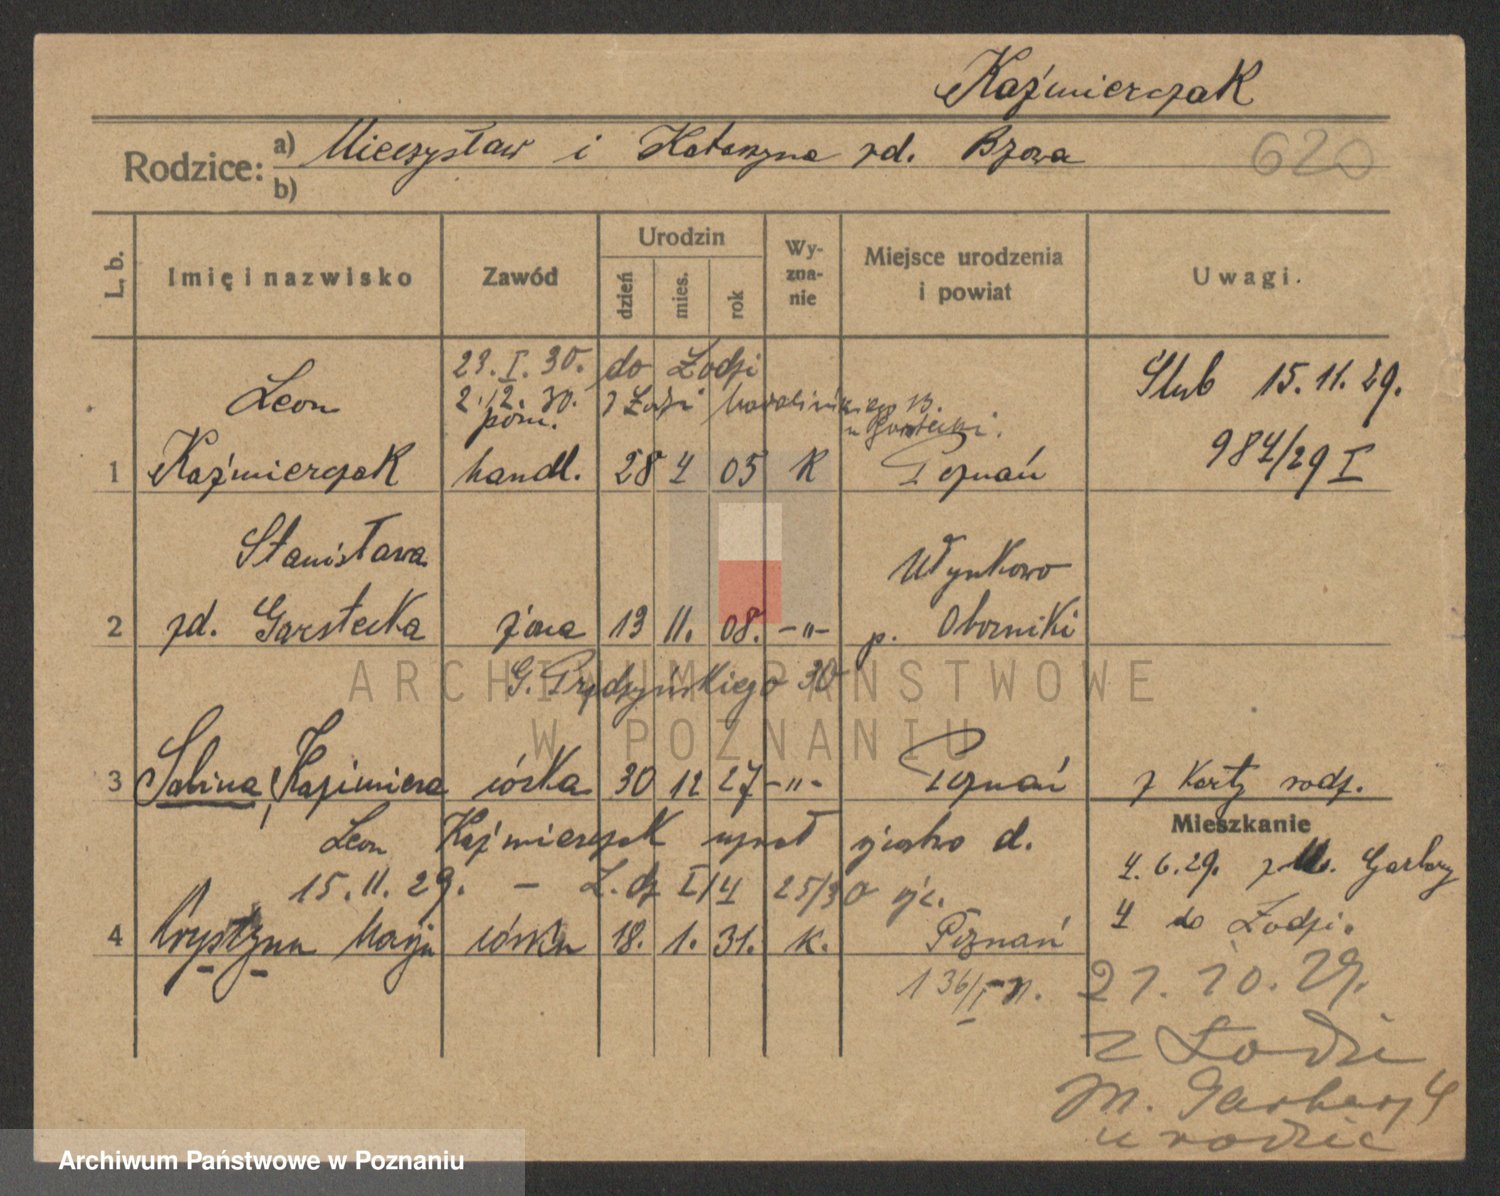 Kaźmierczak
Rodzice: a) Mieczysław i Katarzyna zd. Bzowa
b)
620
L. b.
Imię i nazwisko
Zawód
Urodzin
dzień
mies.
rok
Wy-
zna-
nie
Miejsce urodzenia
i powiat
Uwagi.
23. I. 30. do Łodzi
2. 12. 30. z Łodzi
Leon
pom.
Ślub 15. 11. 29.
1 Kaźmierczak handl. 28 4 05 K Poznań
984/29 I
Stanisława
Ułynkowo
2 zd. Garstecka żona 13 11. 08. -"- p. Oborniki
G. Prądzyńskiego 30
3 Sabina, Kazimiera córka 30 12 27 -"- Poznań z karty rodz.
Leon Kaźmierczak uznał dziecko d.
15. 11. 29. - L. dz I/4 25/30
4 Krystyna Marja córka 18. 1. 31. K. Poznań
136/I-31.
Mieszkanie
4. 6. 29. z Garbary
4 do Łodzi.
21. 10. 29.
z Łodzi
m. Garbary 4
u rodzic
ARCHIWUM PAŃSTWOWE
W POZNANIU
Archiwum Państwowe w Poznaniu